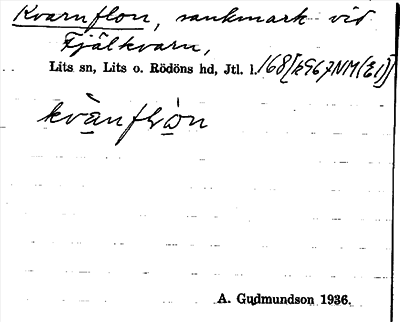 Kvarnflon, sankmark vid
Fjälkvarn,
Lits sn, Lits o. Rödöns hd, Jtl. l.
kvànflòn
A. Gudmundson 1936.